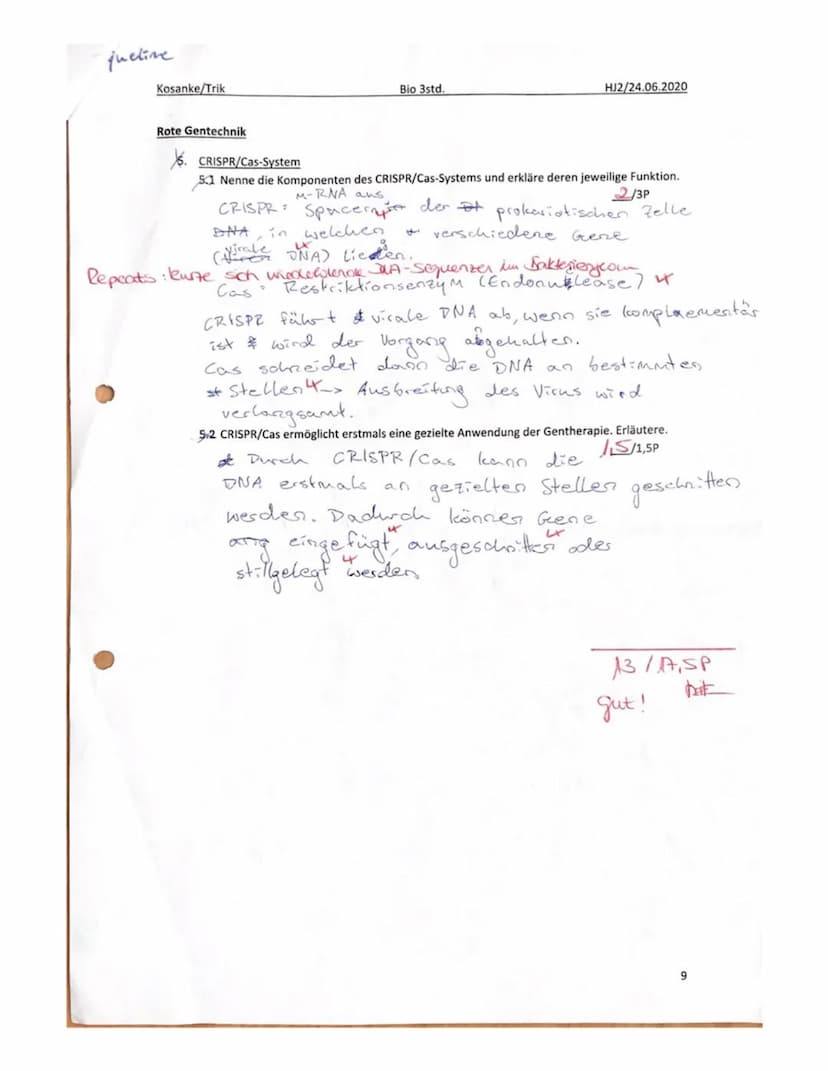 Kosanke/Trik Bio 3std. HJ2/24.06.2020
Rote Gentechnik
5. CRISPR/Cas-System
5.1 Nenne die Komponenten des CRISPR/Cas-Systems und erkläre deren jeweilige Funktion.
2/3P
m-RNA aus
CRISPR: Spacern in der prokariotischen Zelle
DNA, in welchen verschiedene Gene
(virale DNA) liegen.
Repeats: kurze sich wiederholende DNA-Sequenzen im Bakteriengenom
Cas: Restriktionsenzym (Endonuklease)
CRISPR führt virale DNA ab, wenn sie komplaementär
ist & wird der Vorgang abgehalten.
Cas schneidet dann die DNA an bestimmten
Stellen -> Ausbreitung des Virus wird
verlangsamt.
5.2 CRISPR/Cas ermöglicht erstmals eine gezielte Anwendung der Gentherapie. Erläutere.
1,5/1,5P
Durch CRISPR/Cas kann die
DNA erstmals an gezielten Stellen geschnitten
werden. Dadurch können Gene
eingefügt, ausgeschnitten oder
stillgelegt werden
13/17,5P
gut!
9